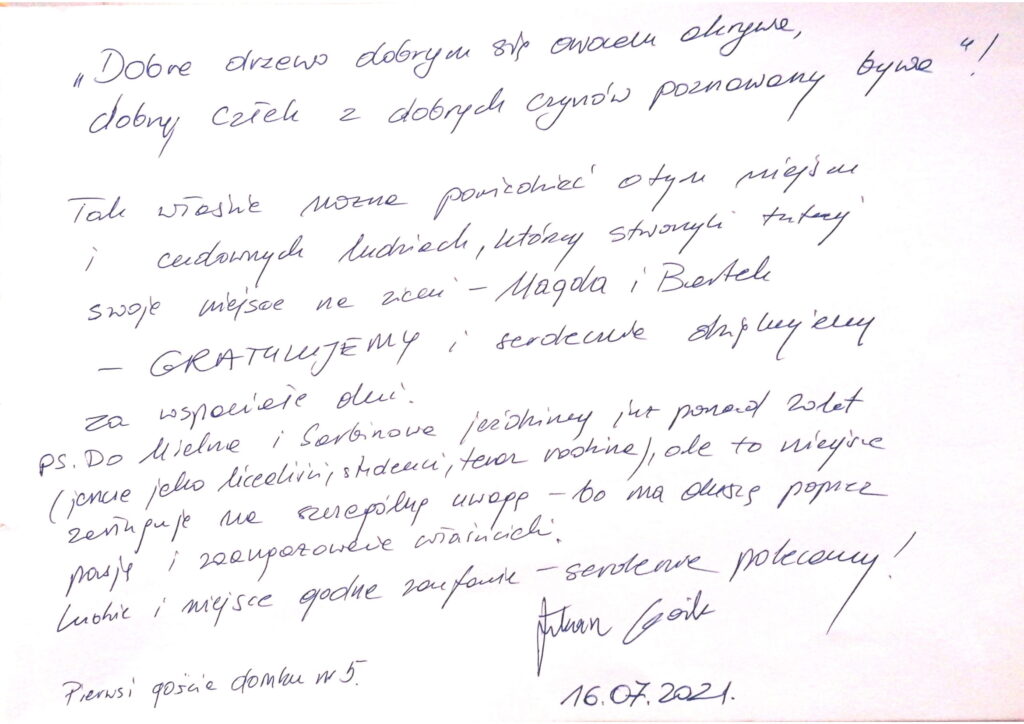 „Dobre drzewo dobrym się owocem okrywa,
dobry człek z dobrych czynów poznawany bywa"!
Tak właśnie można powiedzieć o tym miejscu
i cudownych ludziach, którzy stworzyli tutaj
swoje miejsce na ziemi – Magda i Bartek
– GRATULUJEMY i serdecznie dziękujemy
za wspaniałe dni.
PS. Do Mielna i Sarbinowa jeździmy już ponad 20 lat
(jeszcze jako licealiści, studenci, teraz rodzina), ale to miejsce
zasługuje na szczególną uwagę – bo ma duszę poprzez
pasję i zaangażowanie właścicieli.
Ludzie i miejsce godne zaufania – serdecznie polecamy!
Pierwsi goście domku nr 5.
16.07.2021.